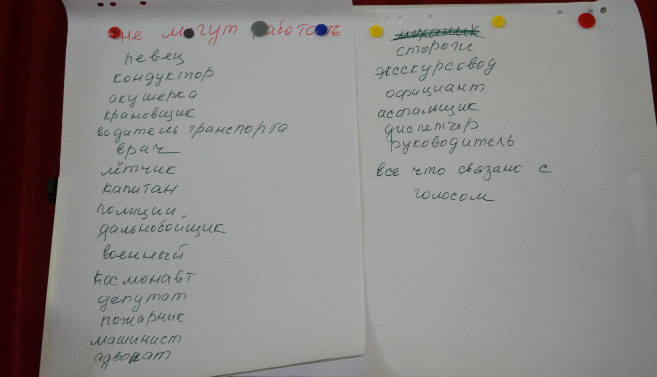 не могут работать
певец
кондуктор
акушерка
крановщик
водитель транспорта
врач
лётчик
капитан
полиции
дальнобойщик
военный
космонавт
депутат
пожарник
машинист
адвокат
механик
сторож
экскурсовод
официант
асфальщик
диспетчер
руководитель
все что связано с
голосом